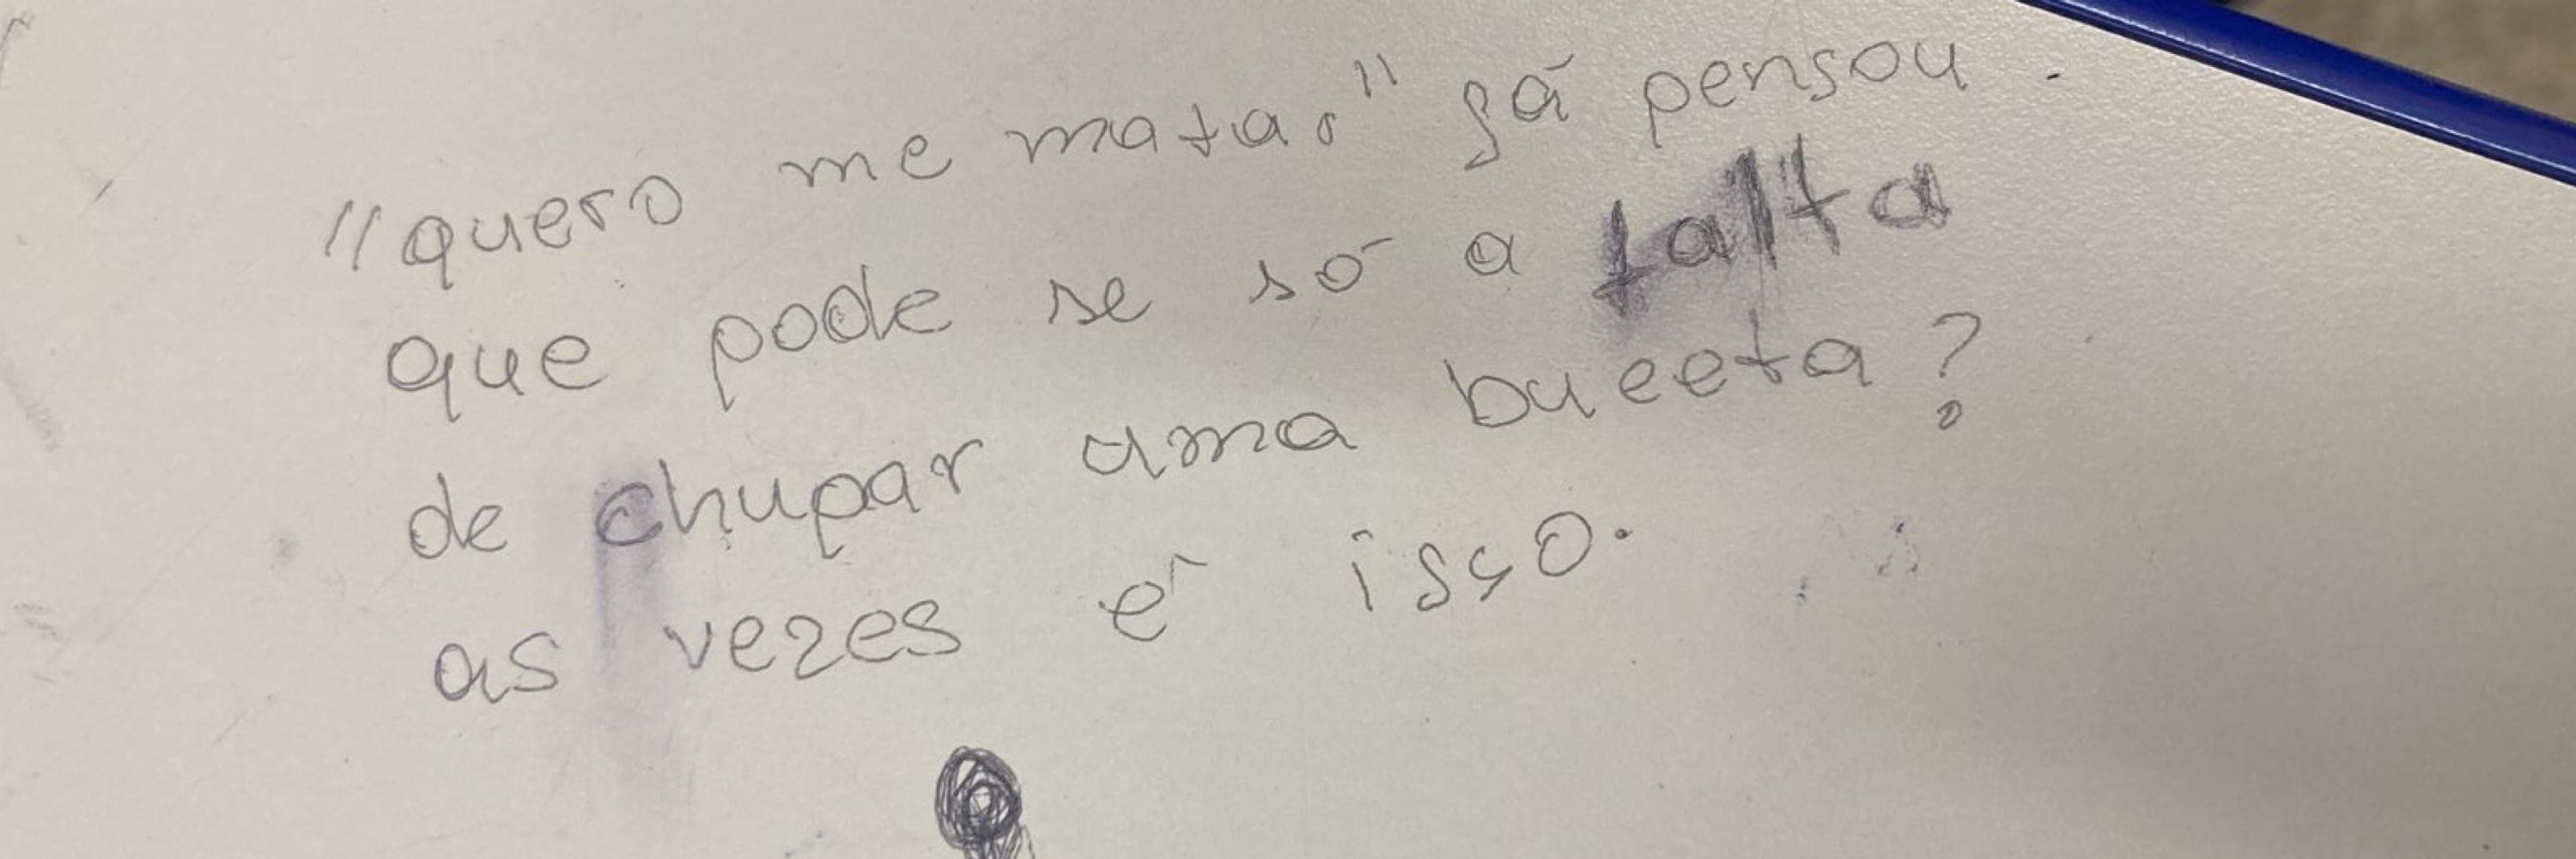 "quero me matar" já pensou
que pode se só a falta
de chupar uma buceta?
as vezes é isso.